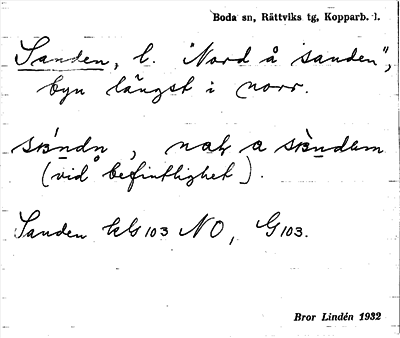 Boda sn, Rättviks tg, Kopparb. l.
Sanden, l. "Nord å sanden",
byn längst i norr.
(vid befintlighet).
Sanden kG103 NO, G103.
Bror Lindén 1932